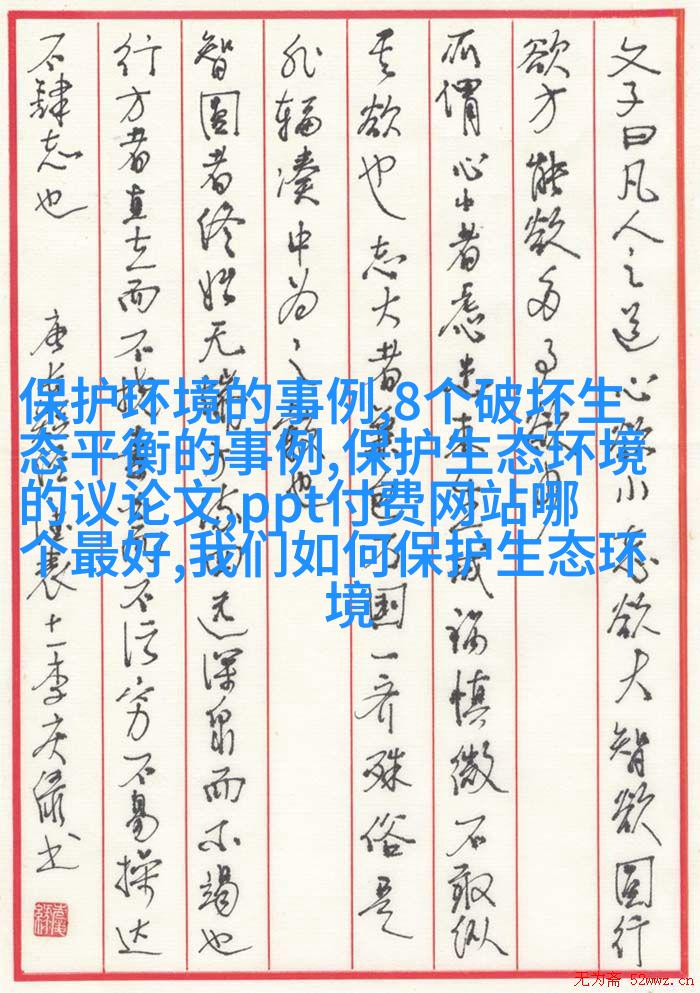 文子曰凡人之道心欲小志欲大智欲圆行
欲方能欲多事欲
所谓心小者虑患未生戒祸慎微不敢纵
其欲也志大者兼包万国一齐殊俗是
非辐凑中为之毂也
智圆者终始无端方流四远深泉而不竭也
行方者直立而不挠素白而不污穷不易操达
不肆志也
唐 十一 李庆 书
保护环境的事例,8个破坏生
态平衡的事例,保护生态环境
的议论文,ppt付费网站哪
个最好,我们如何保护生态环
境
无为斋 52wwz.cn